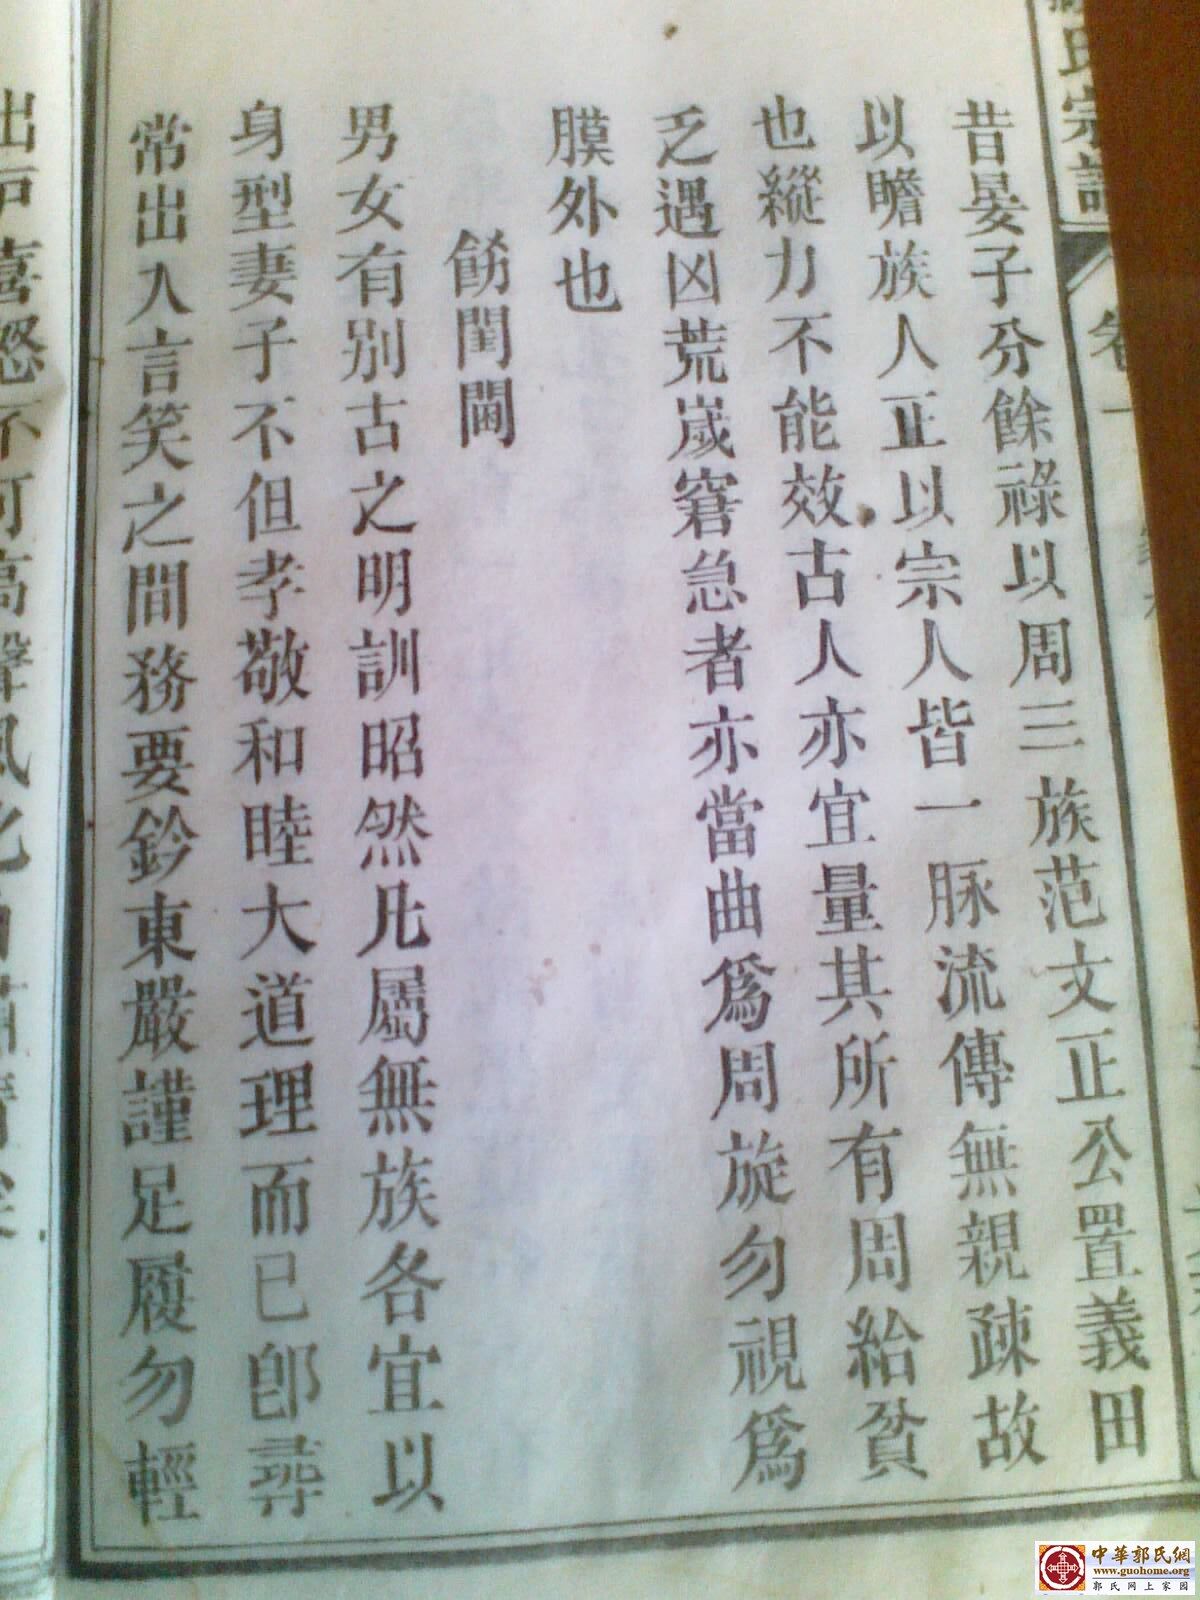 氏宗譜 卷一
昔晏子分餘祿以周三族范文正公置義田
以瞻族人正以宗人皆一脉流傳無親疎故
也縱力不能效古人亦宜量其所有周給貧
乏遇凶荒嵗窘急者亦當曲爲周旋勿視爲
膜外也
飭閨閫
男女有别古之明訓昭然凡屬無族各宜以
身型妻子不但孝敬和睦大道理而已卽尋
常出入言笑之間務要鈐東嚴謹足履勿輕
出戸喜怒不可高聲風化
中華郭氏網
www.guohome.org
郭氏网上家园